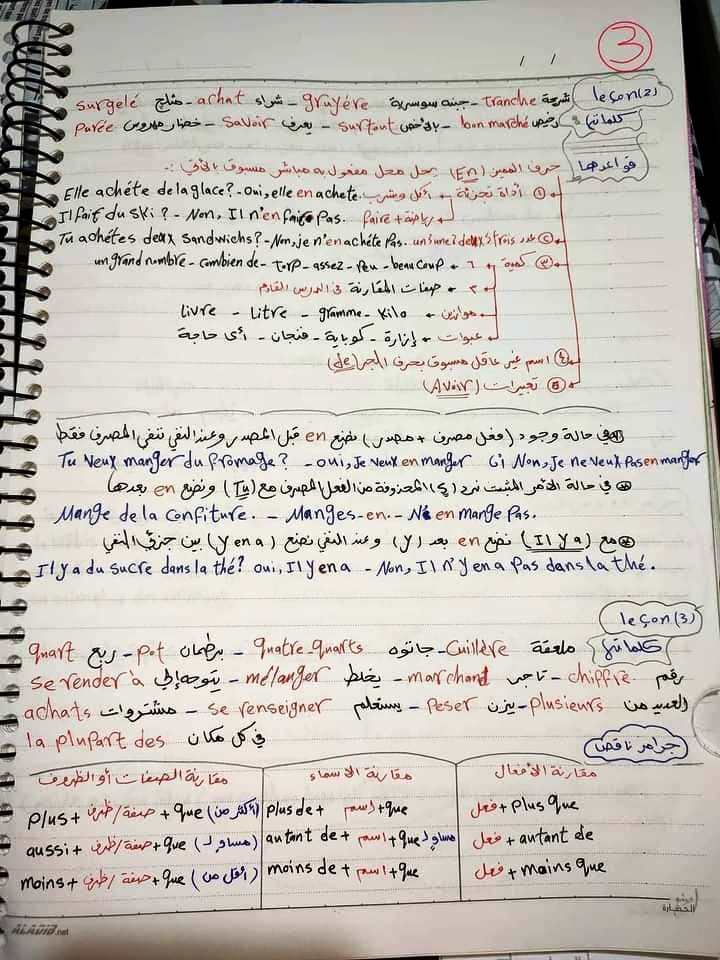 3
/ /
leçon(2)
شرحة tranche - جبنه سويسرية gruyére - شراء achat - مثلج surgelé
كلماتها
رخيص bon marché - بالأخص surtout - يعرف savoir - خضار مهروس purée
قواعدها
حرف الضمير (En) يحل محل مفعول به مباشر مسبوق بالآتي :-
① أداة تجزئة ← أكل وشرب. Elle achéte de la glace? - oui, elle en achete.
رياضة + faire Il fait du ski ? - Non, Il n'en faite pas.
② عدد un/une/deux/trois Tu achétes deux sandwichs? - Non, je n'en achéte pas.
③ كمية ← ١ ← beaucoup - peu - assez - torp - combien de - un grand nombre
٢ ← صفات المقارنة في الدرس القادم
موازين ← Kilo - gramme - Litre - Livre
عبوات ← إزازة - كوباية - فنجان - أى حاجة
④ اسم غير عاقل مسبوق بحرف الجر (de)
⑤ تعبيرات (Avoir)
في حالة وجود (فعل مصرف + مصدر) نضع en قبل المصدر وعند النفي ننفي المصرف فقط
Tu veux manger du fromage? - oui, Je veux en manger Non, Je ne veux pas en manger
في حالة الأمر المثبت نرد (s) المحذوفة من الفعل المصرف مع (Tu) ونضع en بعدها
Mange de la confiture. - Manges-en. - Ne en mange pas.
مع (Il y a) نضع en بعد (y) وعند النفي نضع (y en a) بين جزئي النفي
Il y a du sucre dans la thé? oui, Il y en a - Non, Il n'y en a pas dans la thé.
leçon(3)
كلماتها
ملعقة Cuillére - جاتوه quatre-quarts - برطمان pot - ربع quart
رقم chiffre - تاجر marchand - يخلط mélanger - يتوجه إلى se render à
العديد من plusieurs - يزن peser - يستعلم se renseigner - مشتروات achats
في كل مكان la plupart des
جرامر ناقصة
مقارنة الأفعال | مقارنة الأسماء | مقارنة الصفات أو الظروف
فعل + plus que | plus de + اسم + que | plus + صفة/ظرف + que (أكثر من)
فعل + autant de | autant de + اسم + que مساو لـ | aussi + صفة/ظرف + que (مساو لـ)
فعل + moins que | moins de + اسم + que | moins + صفة/ظرف + que (أقل من)
الحضارة
ALADIB.net